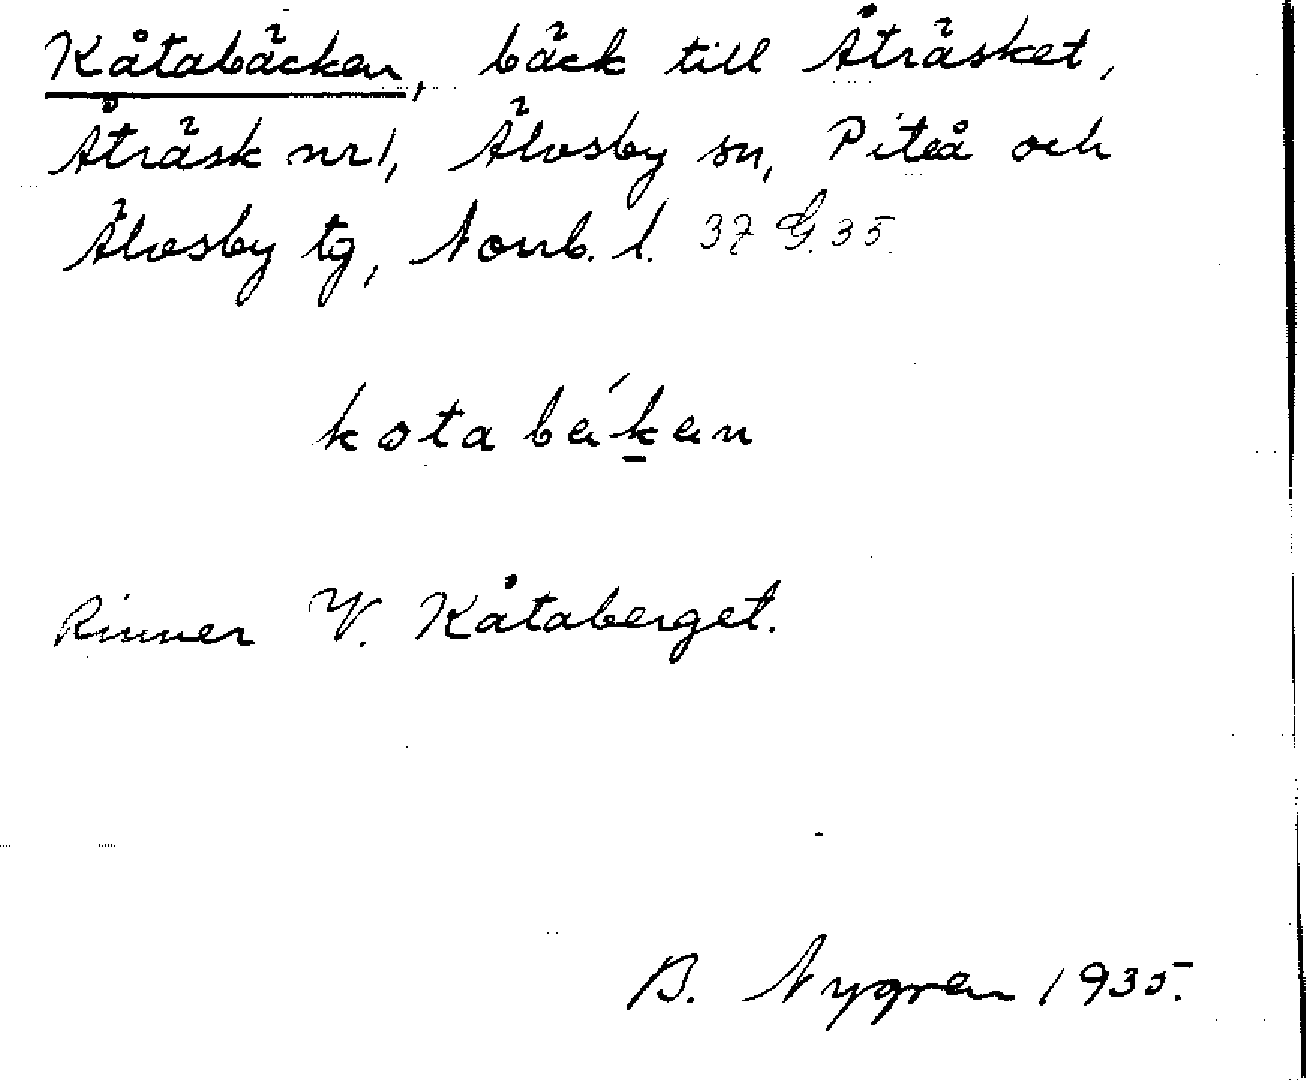 Kåtabäcken, bäck till Åträsket,
Åträsk nr 1, Älvsby sn, Piteå och
Älvsby tg, Norrb. l. 37 G. 35
kotabäken
Rinner V. Kåtaberget.
B. Nygren 1935.